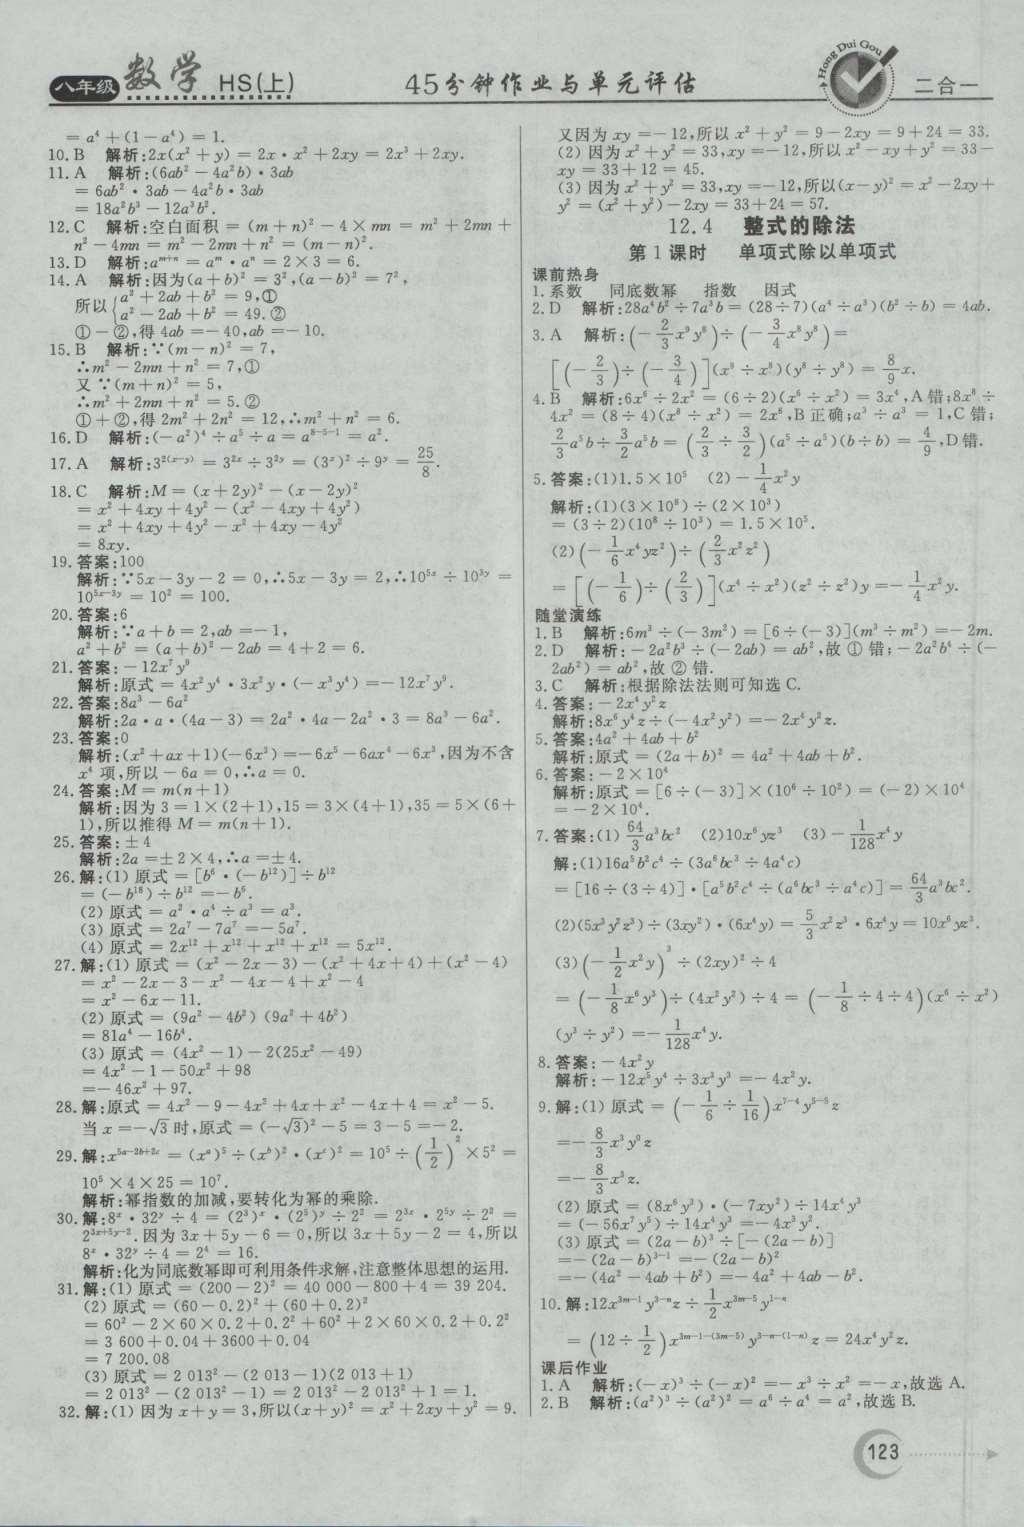 八年级 数学 HS(上) 45分钟作业与单元评估 Hong Dui Gou 二合一
= a⁴+(1-a⁴)=1.
10. B 解析:2x(x²+y)=2x·x²+2xy=2x³+2xy.
11. A 解析:(6ab²-4a²b)·3ab
=6ab²·3ab-4a²b·3ab
=18a²b³-12a³b².
12. C 解析:空白面积=(m+n)²-4×mn=m²+2mn+
n²-4mn=m²-2mn+n²=(m-n)².
13. D 解析:aᵐ⁺ⁿ=aᵐ·aⁿ=2×3=6.
14. A 解析:因为(a+b)²=3²,(a-b)²=7²,
所以{a²+2ab+b²=9,①
a²-2ab+b²=49.②
①-②,得4ab=-40,ab=-10.
15. B 解析:∵(m-n)²=7,
∴m²-2mn+n²=7,①
又∵(m+n)²=5,
∴m²+2mn+n²=5.②
①+②,得2m²+2n²=12,∴m²+n²=6.
16. D 解析:(-a²)⁴÷a⁵÷a=a⁸⁻⁵⁻¹=a².
17. A 解析:3^{2(x-y)}=3^{2x}÷3^{2y}=(3ˣ)²÷9ʸ=25/8.
18. C 解析:M=(x+2y)²-(x-2y)²
=x²+4xy+4y²-(x²-4xy+4y²)
=x²+4xy+4y²-x²+4xy-4y²
=8xy.
19. 答案:100
解析:∵5x-3y-2=0,∴5x-3y=2,∴10^{5x}÷10^{3y}=
10^{5x-3y}=10²=100.
20. 答案:6
解析:∵a+b=2,ab=-1,
a²+b²=(a+b)²-2ab=4+2=6.
21. 答案:-12x⁷y⁹
解析:原式=4x²y⁴·3x²y·(-x³y⁴)=-12x⁷y⁹.
22. 答案:8a³-6a²
解析:2a·a·(4a-3)=2a²·4a-2a²·3=8a³-6a².
23. 答案:0
解析:(x²+ax+1)(-6x³)=-6x⁵-6ax⁴-6x³,因为不含
x⁴项,所以-6a=0,∴a=0.
24. 答案:M=m(n+1)
解析:因为3=1×(2+1),15=3×(4+1),35=5×(6+
1),所以推得M=m(n+1).
25. 答案:±4
解析:2a=±2×4,∴a=±4.
26. 解:(1)原式=[b⁶·(-b¹²)]÷b¹²
=(-b¹⁸)÷b¹²=-b⁶.
(2)原式=a²·a⁴÷a³=a³.
(3)原式=2a⁷-7a⁷=-5a⁷.
(4)原式=2x¹²+x¹²+x¹²+x¹²=5x¹².
27. 解:(1)原式=(x²-2x-3)-(x²+4x+4)+(x²-4)
=x²-2x-3-x²-4x-4+x²-4
=x²-6x-11.
(2)原式=(9a²-4b²)(9a²+4b²)
=81a⁴-16b⁴.
(3)原式=(4x²-1)-2(25x²-49)
=4x²-1-50x²+98
=-46x²+97.
28. 解:原式=4x²-9-4x²+4x+x²-4x+4=x²-5.
当x=-√3时,原式=(-√3)²-5=3-5=-2.
29. 解:x^{5a-2b+2c}=(xᵃ)⁵÷(xᵇ)²·(xᶜ)²=10⁵÷(1/2)²×5²=
10⁵×4×25=10⁷.
解析:幂指数的加减,要转化为幂的乘除.
30. 解:8ˣ·32ʸ÷4=(2³)ˣ·(2⁵)ʸ÷2²=2^{3x}·2^{5y}÷2²=
2^{3x+5y-2}.因为3x+5y-6=0,所以3x+5y-2=4,所以
8ˣ·32ʸ÷4=2⁴=16.
解析:化为同底数幂即可利用条件求解,注意整体思想的运用.
31. 解:(1)原式=(200-2)²=40 000-800+4=39 204.
(2)原式=(60-0.2)²+(60+0.2)²
=60²-2×60×0.2+0.2²+60²+2×60×0.2+0.2²
=3 600+0.04+3600+0.04
=7 200.08
(3)原式=2 013²-(2 013-1)(2 013+1)
=2 013²-(2 013²-1)=2 013²-2 013²+1=1.
32. 解:(1)因为x+y=3,所以(x+y)²=x²+2xy+y²=9.
又因为xy=-12,所以x²+y²=9-2xy=9+24=33.
(2)因为x²+y²=33,xy=-12,所以x²-xy+y²=33-
xy=33+12=45.
(3)因为x²+y²=33,xy=-12,所以(x-y)²=x²-2xy+
y²=(x²+y²)-2xy=33+24=57.
12.4 整式的除法
第1课时 单项式除以单项式
课前热身
1. 系数 同底数幂 指数 因式
2. D 解析:28a⁴b²÷7a³b=(28÷7)(a⁴÷a³)(b²÷b)=4ab.
3. A 解析:(-2/3x⁹y⁸)÷(-3/4x⁸y⁸)=
[(-2/3)÷(-3/4)](x⁹÷x⁸)(y⁸÷y⁸)=8/9x.
4. B 解析:6x⁶÷2x²=(6÷2)(x⁶÷x²)=3x⁴,A错;8x⁸÷
4x²=(8÷4)(x⁸÷x²)=2x⁶,B正确;a³÷a³=1,C错;
2/3a⁵b÷3/2a⁵b=(2/3÷3/2)(a⁵÷a⁵)(b÷b)=4/9,D错.
5. 答案:(1)1.5×10⁵ (2)-1/4x²y
解析:(1)(3×10⁸)÷(2×10³)
=(3÷2)(10⁸÷10³)=1.5×10⁵.
(2)(-1/6x⁴yz²)÷(2/3x²z²)
=[(-1/6)÷(2/3)](x⁴÷x²)(z²÷z²)y=-1/4x²y.
随堂演练
1. B 解析:6m³÷(-3m²)=[6÷(-3)](m³÷m²)=-2m.
2. D 解析:-2a²b³÷(-2ab)=ab²,故①错;-2a²b⁴÷(-
2ab²)=ab²,故②错.
3. C 解析:根据除法法则可知选C.
4. 答案:-2x⁴y²z
解析:8x⁶y⁴z÷(-4x²y²)=-2x⁴y²z.
5. 答案:4a²+4ab+b²
解析:原式=(2a+b)²=4a²+4ab+b².
6. 答案:-2×10⁴
解析:原式=[6÷(-3)]×(10⁶÷10²)=(-2)×10⁴
=-2×10⁴.
7. 答案:(1)64/3a³bc² (2)10x⁶yz³ (3)-1/128x⁴y
解:(1)16a⁵b²c⁴÷(3a⁶bc³÷4a⁴c)
=[16÷(3÷4)]·[a⁵b²c⁴÷(a⁶bc³÷a⁴c)]=64/3a³bc².
(2)(5x³y²z³)÷(3xy²)·(6x⁴y)=5/3x²z³·6x⁴y=10x⁶yz³.
(3)(-1/2x²y)³÷(2xy)²÷4
=(-1/8x⁶y³)÷(4x²y²)÷4=(-1/8÷4÷4)(x⁶÷x²)
(y³÷y²)=-1/128x⁴y.
8. 答案:-4x²y
解析:-12x⁵y⁴÷3x³y³=-4x²y.
9. 解:(1)原式=(-1/6÷1/16)x⁷⁻⁴y⁵⁻⁵z
=-8/3x³y⁰z
=-8/3x³z.
(2)原式=(8x⁶y³)·(-7xy²)÷14x⁴y³
=(-56x⁷y⁵)÷14x⁴y³=-4x³y².
(3)原式=(2a-b)³÷[-(2a-b)]
=-(2a-b)³⁻¹=-(2a-b)²
=-(4a²-4ab+b²)=-4a²+4ab-b².
10. 解:12x^{3m-1}y^{3-n}z÷1/2x^{3m-5}y^{1-n}
=(12÷1/2)x^{3m-1-(3m-5)}y^{3-n-(1-n)}z=24x⁴y²z.
课后作业
1. A 解析:(-x)³÷(-x)²=-x³÷x²=-x,故选A.
2. B 解析:(a²)³÷(a²)²=a⁶÷a⁴=a²,故选B.
123